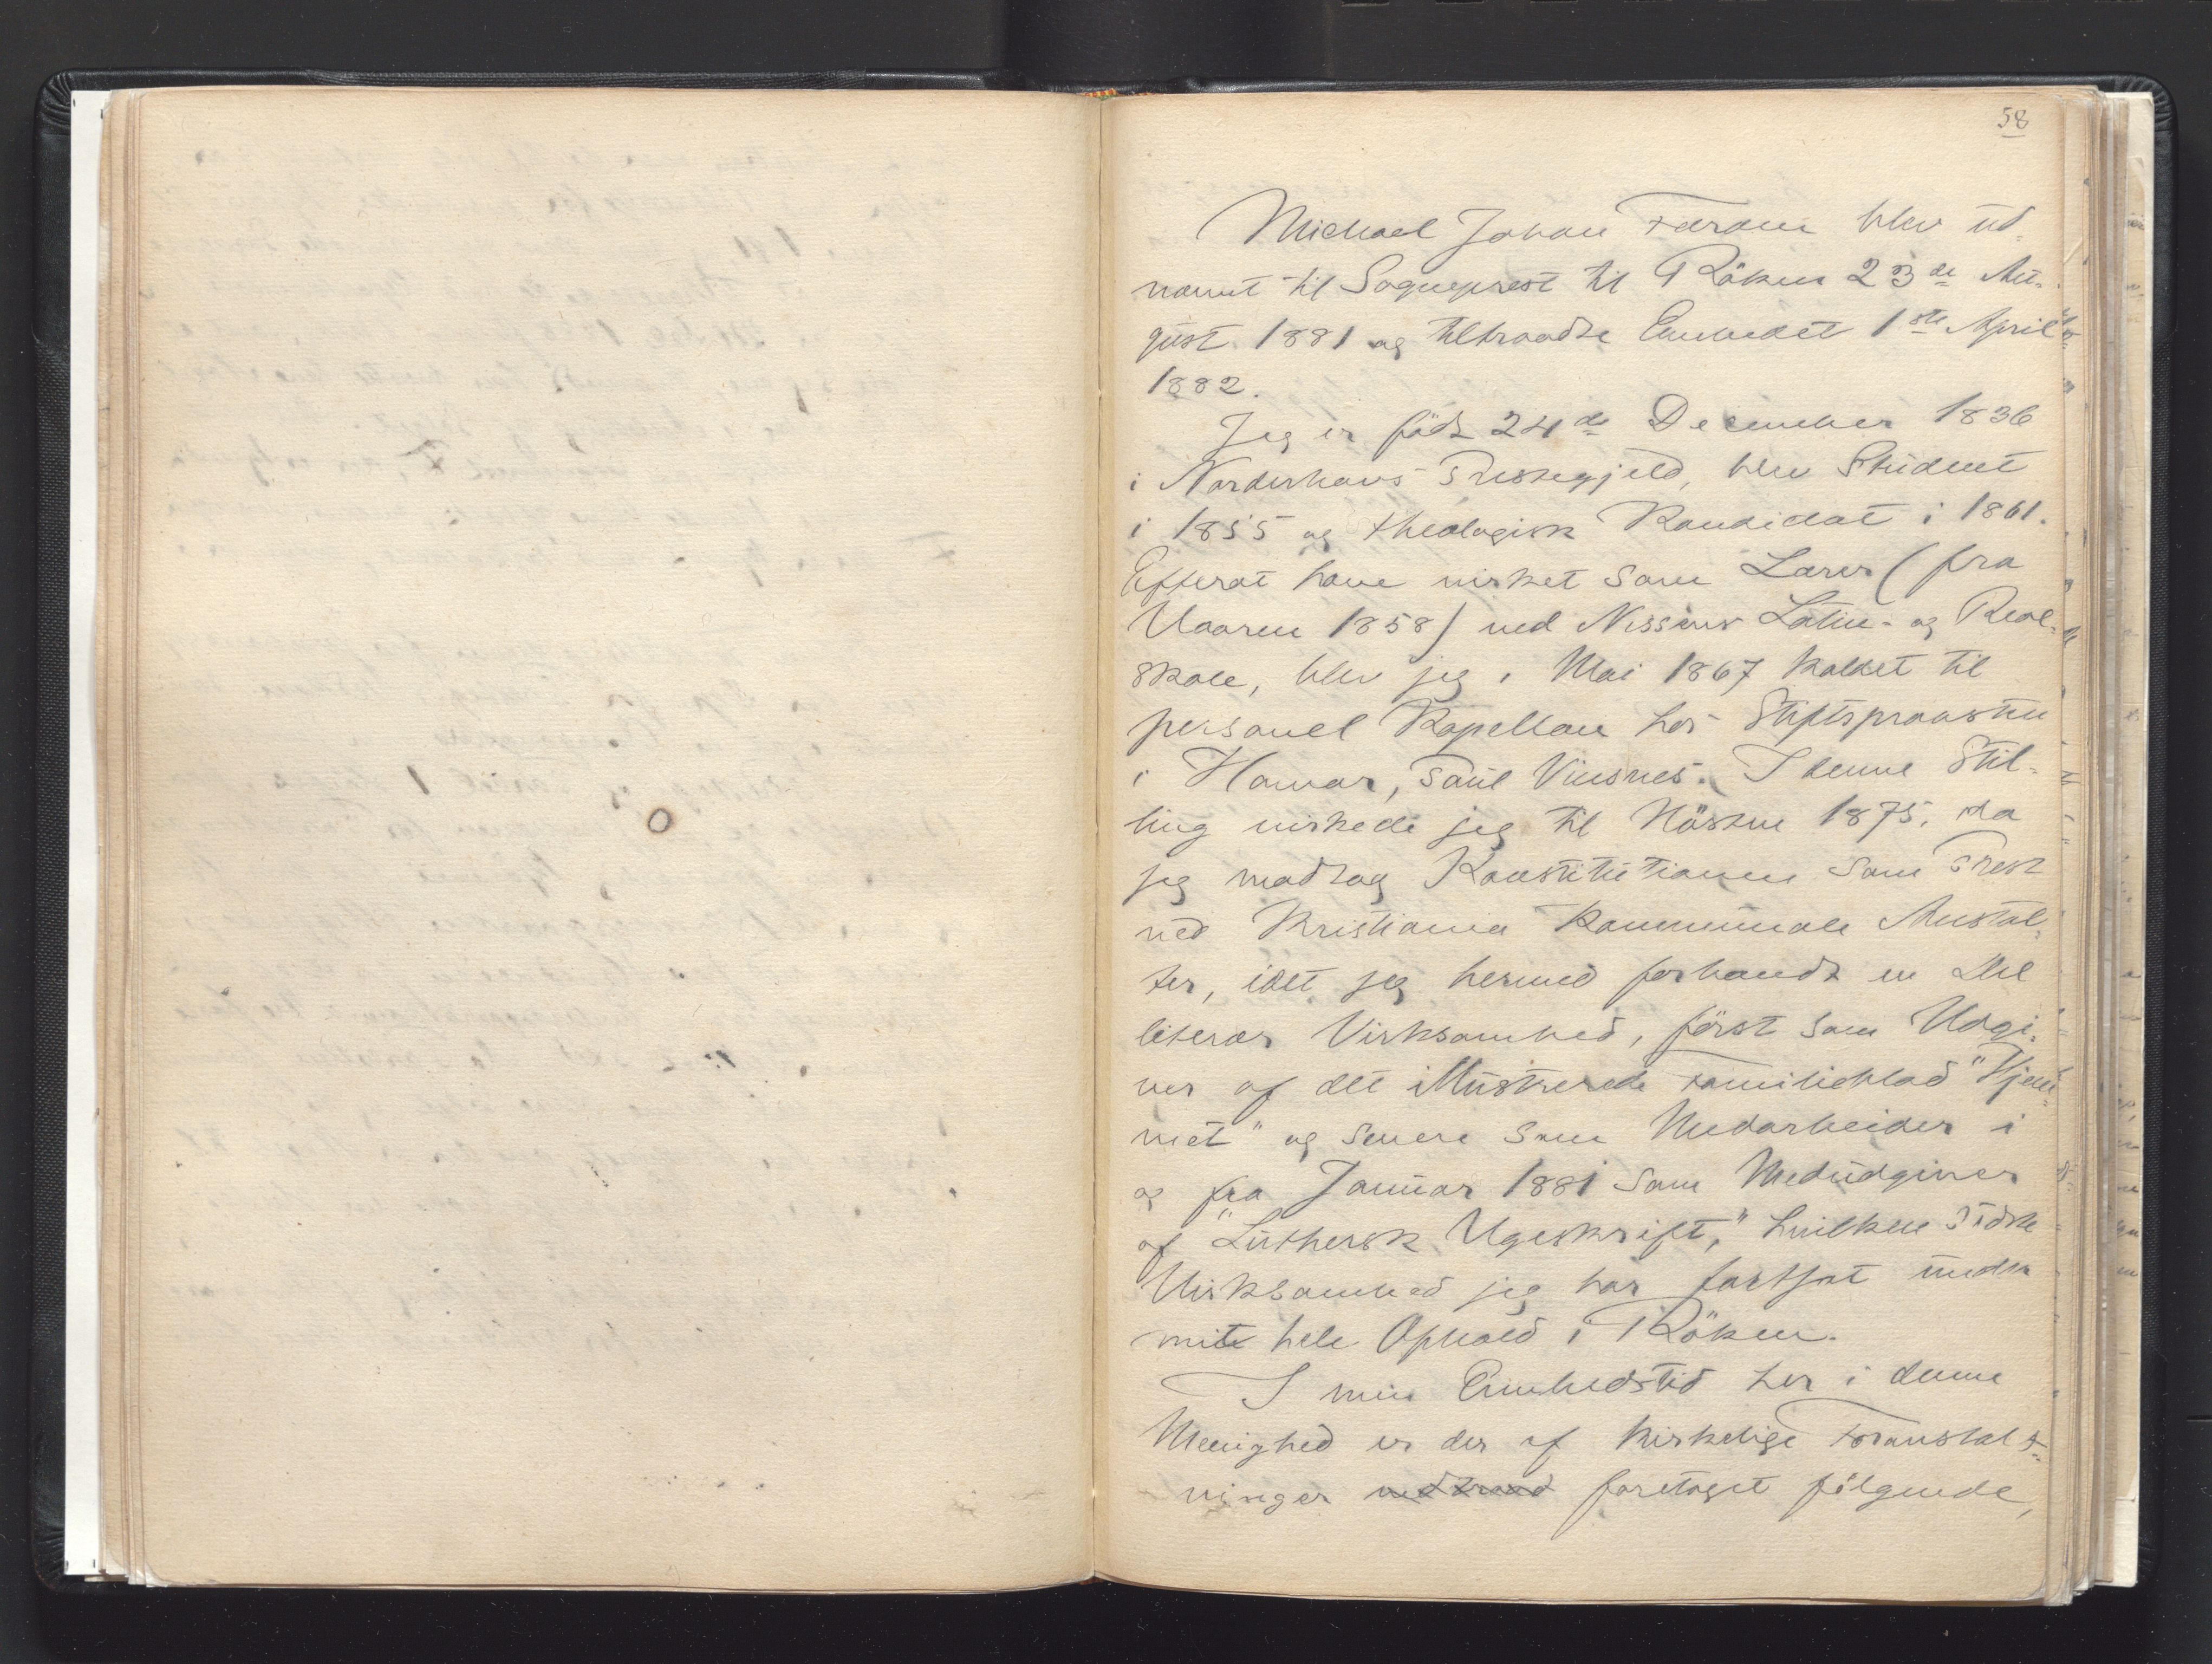 58
Michael Johan Færden blev ud-
nævnt til Sogneprest til Röken 23de Au-
gust 1881 og tiltraadte Embedet 1ste April
1882.
Jeg er född 24de December 1836
i Norderhovs Prestegjeld, blev Student
i 1855 og theologisk Kandidat i 1861.
Efterat have virket som Lærer (fra
Vaaren 1858) ved Nissens Latin- og Real-
skole, blev jeg i Mai 1867 kaldet til
personel Kapellan hos Stiftsprovsten
i Hamar, Paul Vinsnes. I denne Stil-
ling virkede jeg til Hösten 1875, da
jeg modtog Konstitutionen som Prest
ved Kristiania kommunale Anstal-
ter, idet jeg hermed forbandt en Del
literær Virksomhed, först som Udgi-
ver af det illustrerede Familieblad "Hjem-
met" og senere som Medarbeider i
og fra Januar 1881 som Medudgiver
af "Luthersk Ugeskrift," hvilken sidste
Virksomhed jeg har fortsat under
mit hele Ophold i Röken.
I min Embedstid her i denne
Menighed er der af kirkelige Foranstalt-
ninger foretaget fölgende,